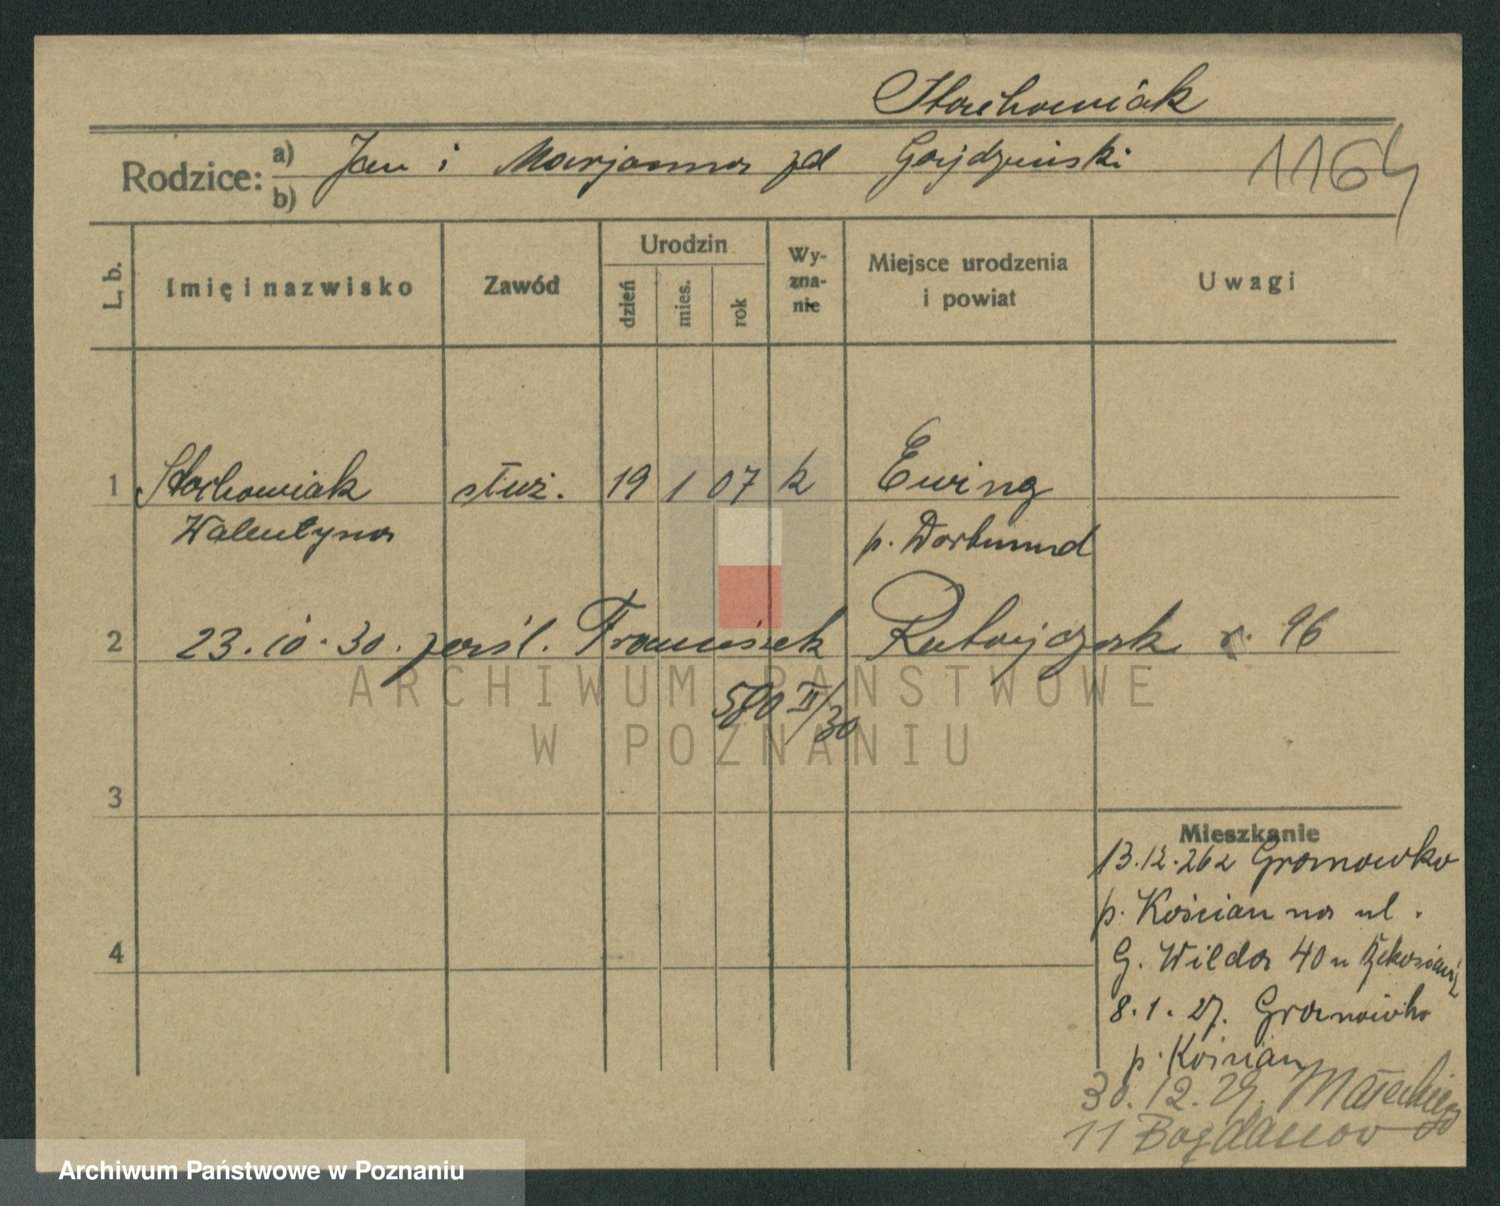 Stachowiak
Rodzice: a) b) Jan i Marjanna zd Gajdziński 1164
L. b. Imię i nazwisko Zawód Urodzin dzień mies. rok Wy-zna-nie Miejsce urodzenia i powiat Uwagi
1 Stachowiak służ. 19 1 07 k Ewing
Walentyna p. Dortmund
2 23.10.30. zaśl. Franciszek Ratajczak r. 96
580 II/30
ARCHIWUM PAŃSTWOWE
W POZNANIU
3
Mieszkanie
13.12.26 z Granowko
p. Kościan na ul.
4 G. Wilda 40 u
8.1.27. Granowko
p. Kościan
30.12.29. Małeckiego
11 Bogdanow
Archiwum Państwowe w Poznaniu